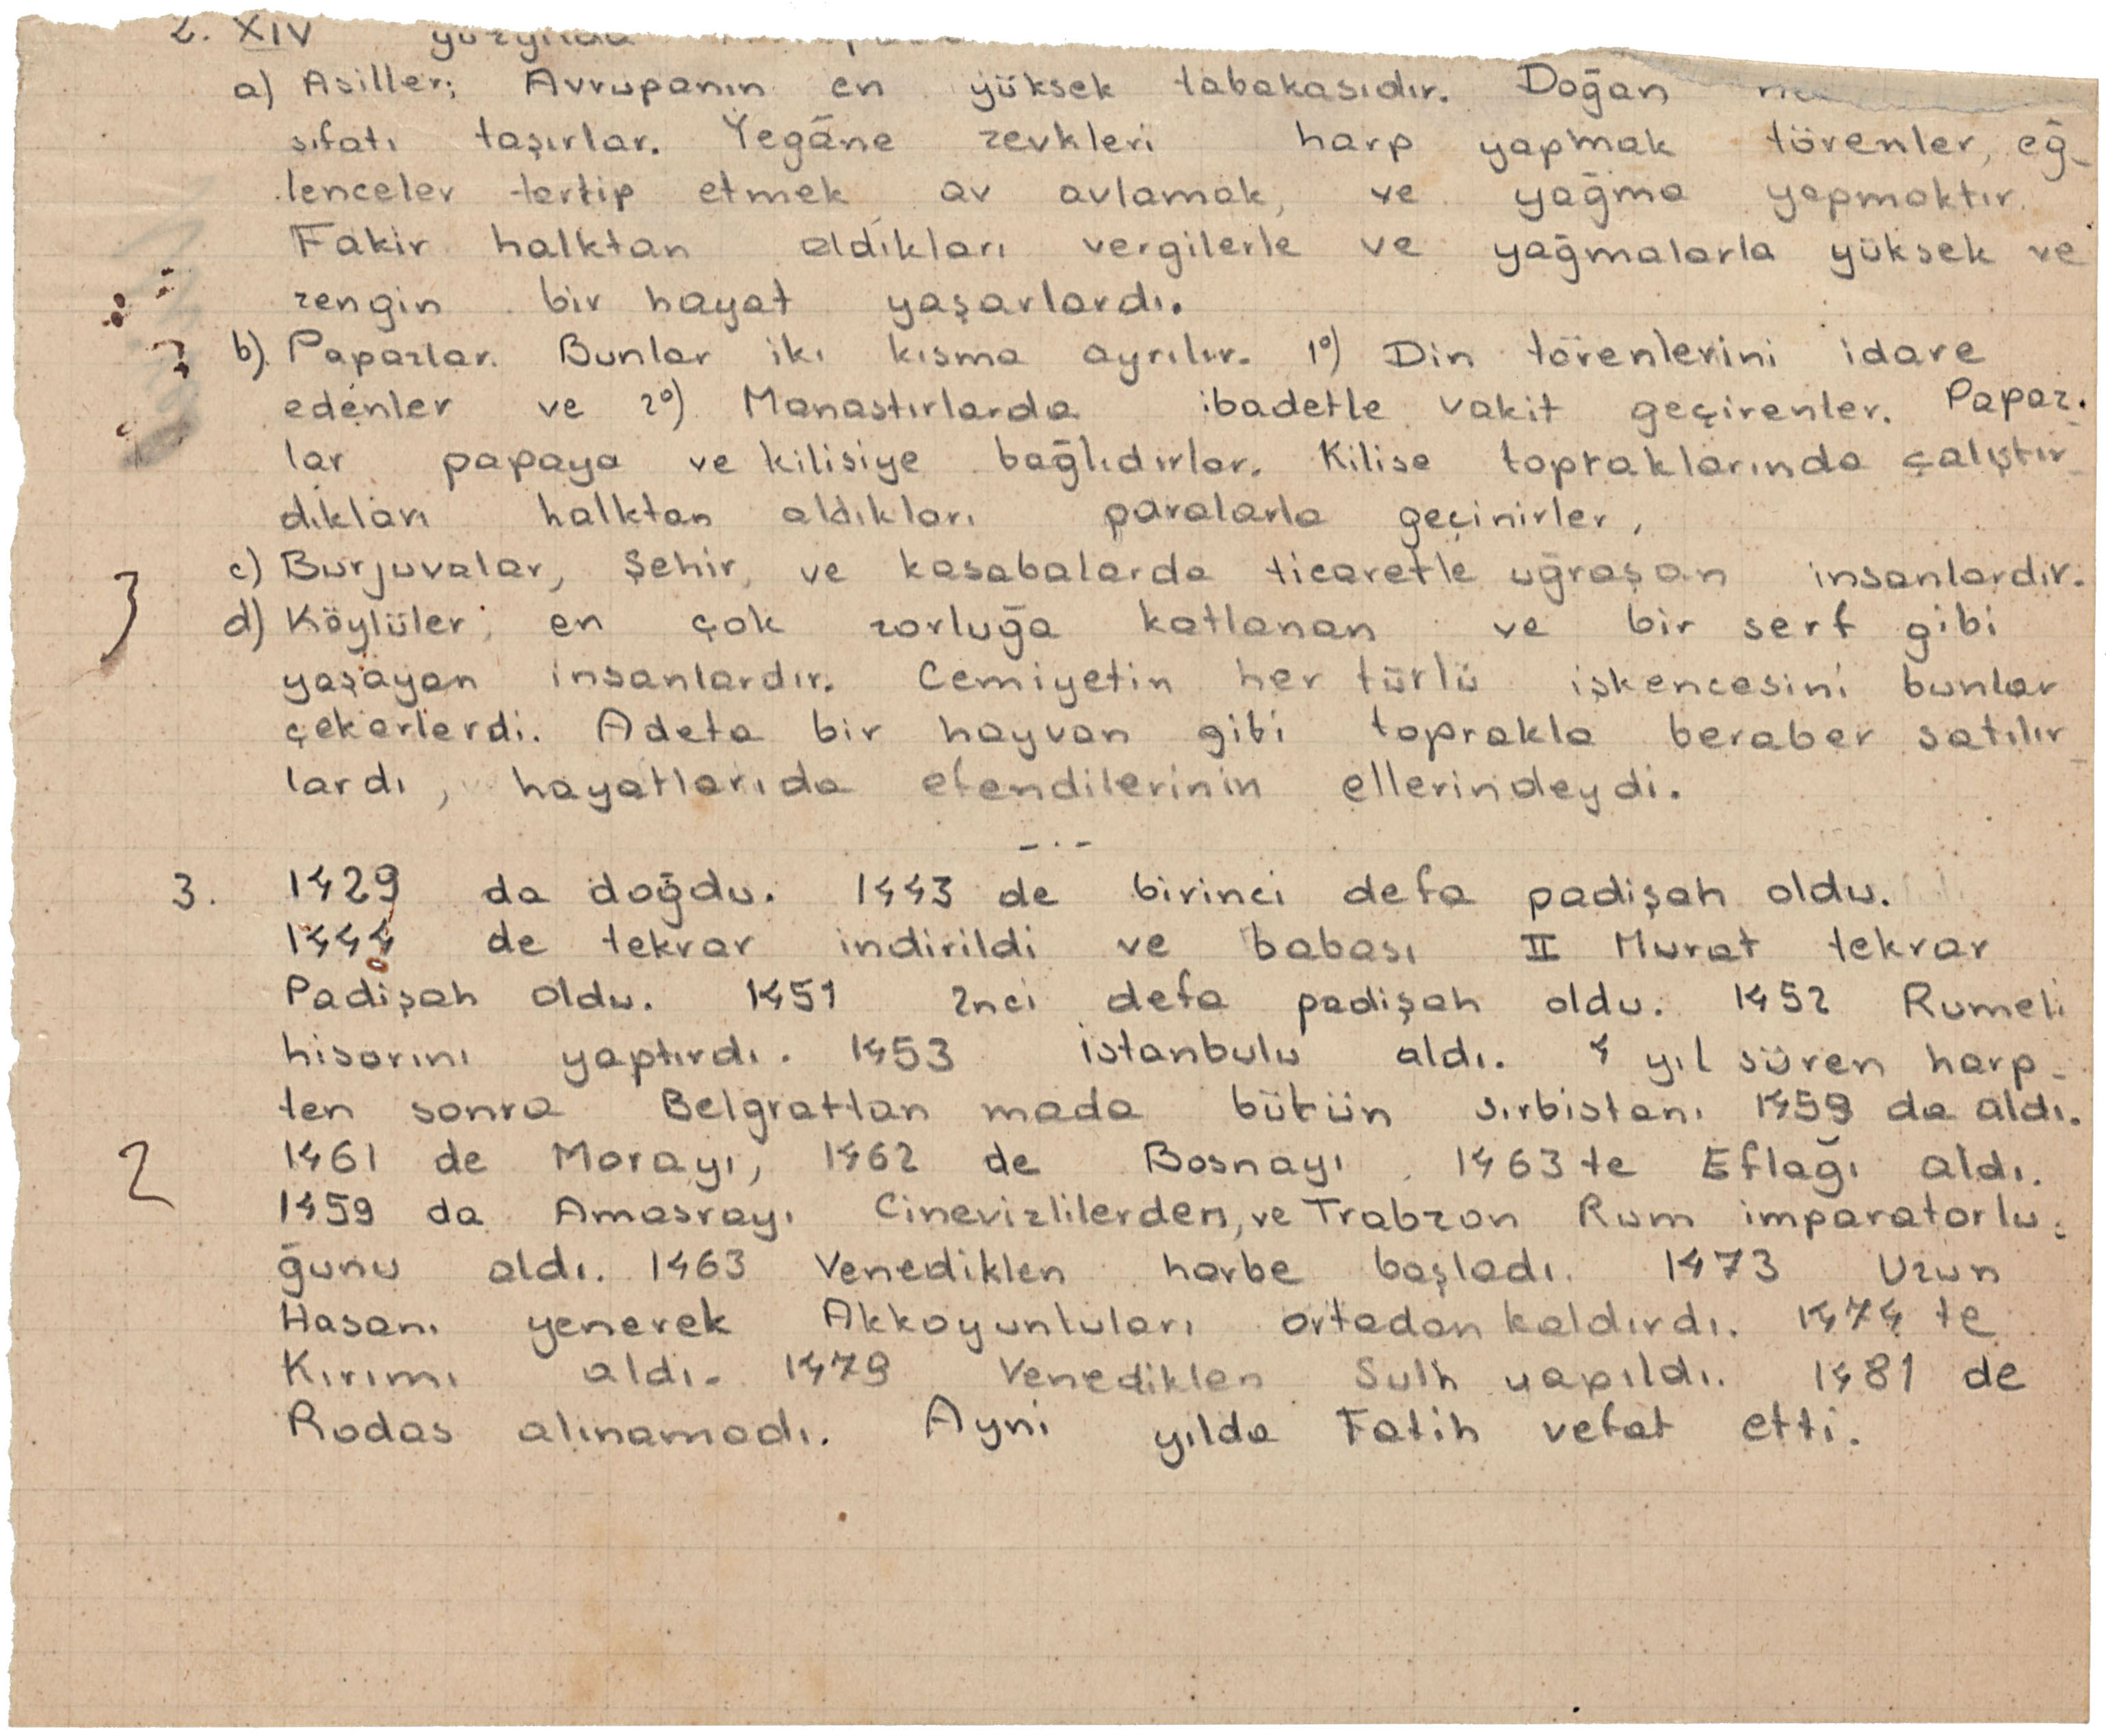 2. XIV yüzyılda
a) Asiller; Avrupanın en yüksek tabakasıdır. Doğan
sıfatı taşırlar. Yegâne zevkleri harp yapmak törenler, eğ-
lenceler tertip etmek, av avlamak, ve yağma yapmaktır.
Fakir halktan aldıkları vergilerle ve yağmalarla yüksek ve
zengin bir hayat yaşarlardı.
b) Papazlar. Bunlar iki kısma ayrılır. 1°) Din törenlerini idare
edenler ve 2°) Manastırlarda ibadetle vakit geçirenler. Papaz-
lar papaya ve kilisiye bağlıdırlar. Kilise topraklarında çalıştır-
dıkları halktan aldıkları paralarla geçinirler,
c) Burjuvalar, Şehir, ve kasabalarda ticaretle uğraşan insanlardır.
3
d) Köylüler; en çok zorluğa katlanan ve bir serf gibi
yaşayan insanlardır. Cemiyetin her türlü işkencesini bunlar
çekerlerdi. Adeta bir hayvan gibi toprakla beraber satılır-
lardı, hayatlarıda efendilerinin ellerindeydi.
-.-
3. 1429 da doğdu. 1443 de birinci defa padişah oldu.
1444 de tekrar indirildi ve babası II Murat tekrar
Padişah oldu. 1451 2nci defa padişah oldu. 1452 Rumeli
hisarını yaptırdı. 1453 istanbulu aldı. 4 yıl süren harp-
ten sonra Belgrattan mada bütün sırbistanı 1459 da aldı.
2
1461 de Morayı, 1462 de Bosnayı, 1463 te Eflağı aldı.
1459 da Amasrayı Cinevizlilerden, ve Trabzon Rum imparatorlu-
ğunu aldı. 1463 Venediklen harbe başladı. 1473 Uzun
Hasanı yenerek Akkoyunluları ortadan kaldırdı. 1474 te
Kırımı aldı. 1479 Venediklen Sulh yapıldı. 1481 de
Rodas alınamadı. Ayni yılda Fatih vefat etti.